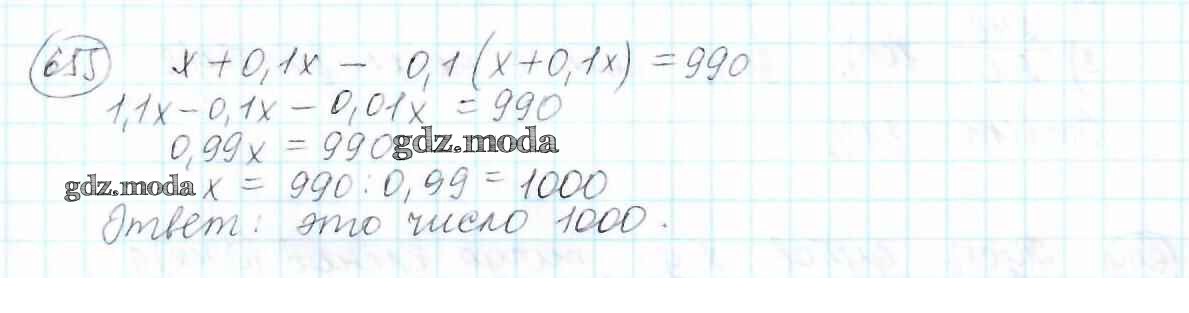 655 x+0,1x - 0,1(x+0,1x) = 990
1,1x-0,1x-0,01x = 990
0,99x = 990 gdz.moda
gdz.moda x = 990:0,99 = 1000
Ответ: это число 1000.